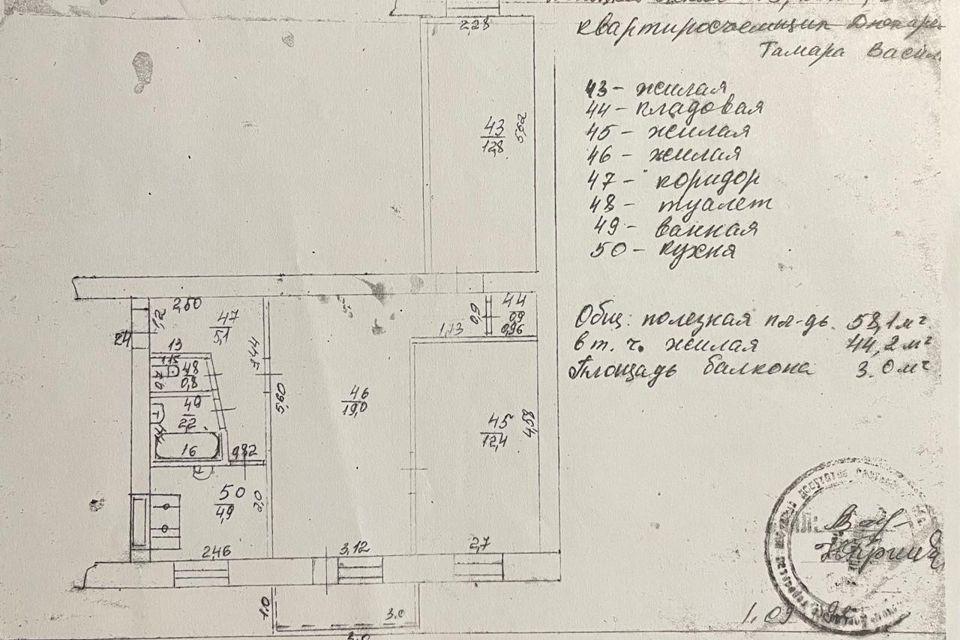 квартиросъемщик
Тамара
43 - жилая
44 - кладовая
45 - жилая
46 - жилая
47 - коридор
48 - туалет
49 - ванная
50 - кухня
Общ. полезная пл-дь. 58,1 м²
в т. ч. жилая 44,2 м²
Площадь балкона 3.0 м²
2,28
43
12,8
5,62
2,60
1,2
47
5,1
24
13
1,15
48
0,8
3,44
49
2,2
16
0,82
5,60
46
19,0
1,13
0,9
44
0,9
0,96
45
12,4
4,58
50
4,9
2,0
2,46
3,12
2,7
1.0
3.0
3.0
1.09